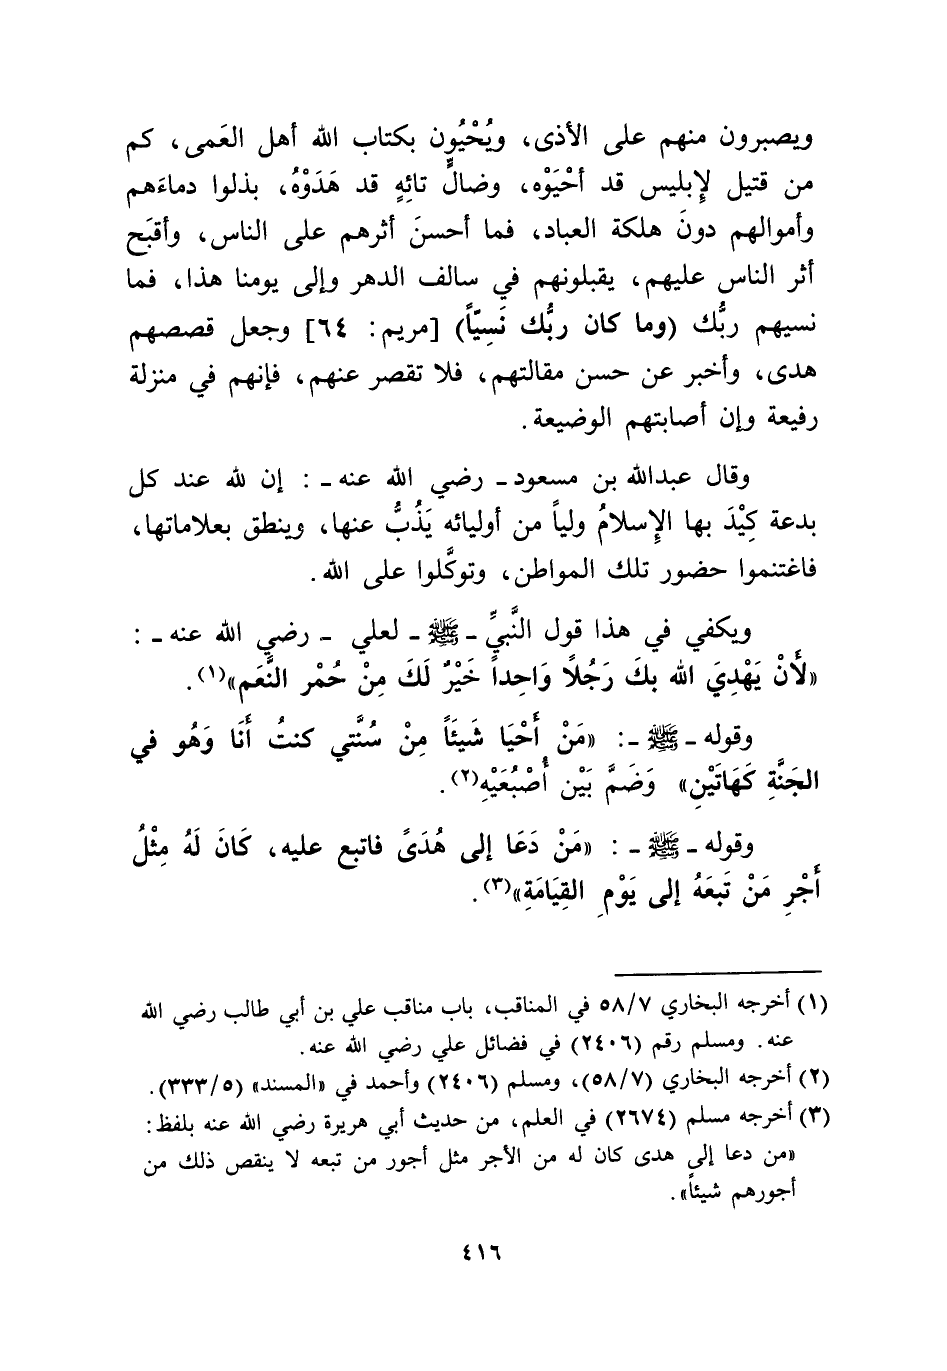 ويصبرون منهم على الأذى، ويُحْيُون بكتاب الله أهل العَمى، كم
من قتيل لإبليس قد أحْيَوْه، وضالٍّ تائِهٍ قد هَدَوْهُ، بذلوا دماءَهم
وأموالهم دونَ هلكة العباد، فما أحسنَ أثرهم على الناس، وأقبَح
أثر الناس عليهم، يقبلونهم في سالف الدهر وإلى يومنا هذا، فما
نسيهم ربُّك (وما كان ربُّك نَسِيّاً) [مريم: ٦٤] وجعل قصصهم
هدى، وأخبر عن حسن مقالتهم، فلا تقصر عنهم، فإنهم في منزلة
رفيعة وإن أصابتهم الوضيعة.
وقال عبدالله بن مسعود ـ رضي الله عنه ـ : إن لله عند كل
بدعة كِيْدَ بها الإِسلامُ ولياً من أوليائه يَذُبُّ عنها، وينطق بعلاماتها،
فاغتنموا حضور تلك المواطن، وتوكَّلوا على الله.
ويكفي في هذا قول النَّبيِّ ـ ﷺ ـ لعلي ـ رضي الله عنه ـ :
«لأَنْ يَهْدِيَ الله بكَ رَجُلاً وَاحِداً خَيْرٌ لَكَ مِنْ حُمْر النَّعَم»(١).
وقوله ـ ﷺ ـ: «مَنْ أَحْيَا شَيئَاً مِنْ سُنَّتي كنتُ أَنَا وَهُو في
الجَنَّةِ كَهَاتَيْنِ» وَضَمَّ بَيْن أُصْبُعَيْهِ(٢).
وقوله ـ ﷺ ـ : «مَنْ دَعَا إلى هُدَىً فاتبع عليه، كَانَ لَهُ مِثْلُ
أَجْرِ مَنْ تَبعَهُ إلى يَوْمِ القِيَامَةِ»(٣).
(١) أخرجه البخاري ٥٨/٧ في المناقب، باب مناقب علي بن أبي طالب رضي الله
عنه. ومسلم رقم (٢٤٠٦) في فضائل علي رضي الله عنه.
(٢) أخرجه البخاري (٥٨/٧)، ومسلم (٢٤٠٦) وأحمد في «المسند» (٣٣٣/٥).
(٣) أخرجه مسلم (٢٦٧٤) في العلم، من حديث أبي هريرة رضي الله عنه بلفظ:
«من دعا إلى هدى كان له من الأجر مثل أجور من تبعه لا ينقص ذلك من
أجورهم شيئاً».
٤١٦